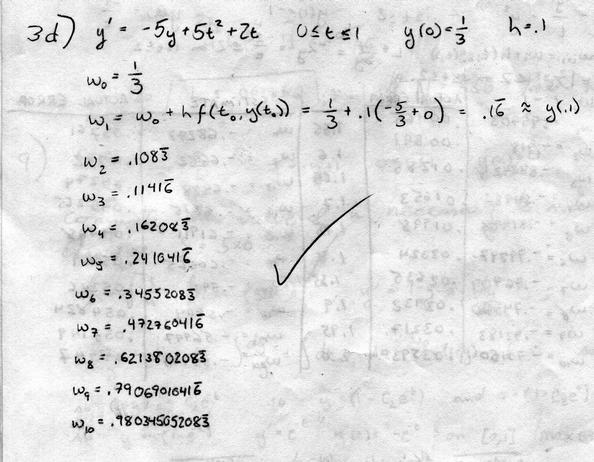 3d) y' = -5y + 5t² + 2t 0 ≤ t ≤ 1 y(0) = 1/3 h = .1
w₀ = 1/3
w₁ = w₀ + h f(t₀, y(t₀)) = 1/3 + .1(-5/3 + 0) = .16̅ ≈ y(.1)
w₂ = .1083̅
w₃ = .11416̅
w₄ = .162083̅
w₅ = .2410416̅
w₆ = .34552083̅
w₇ = .472760416̅
w₈ = .6213802083̅
w₉ = .79069010416̅
w₁₀ = .980345052083̅